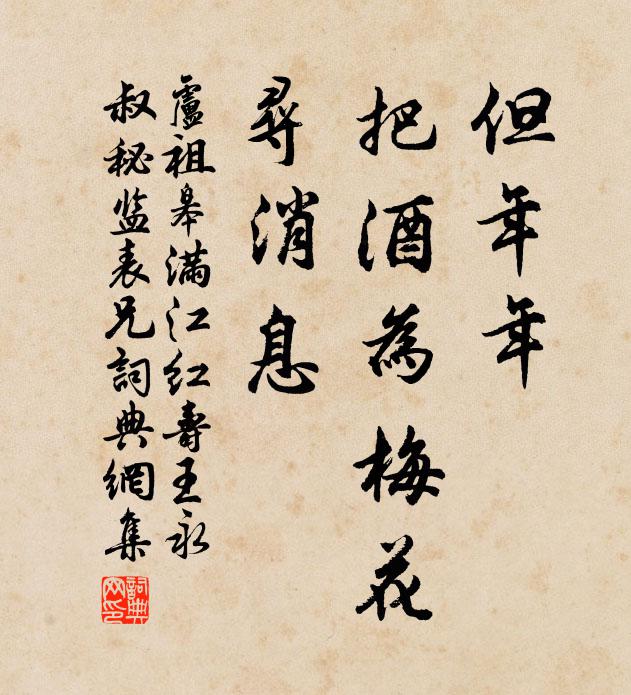 但年年
把酒為梅花
尋消息
盧祖皋滿江紅壽王永
叔秘监表兄詞典網集
詞典網印